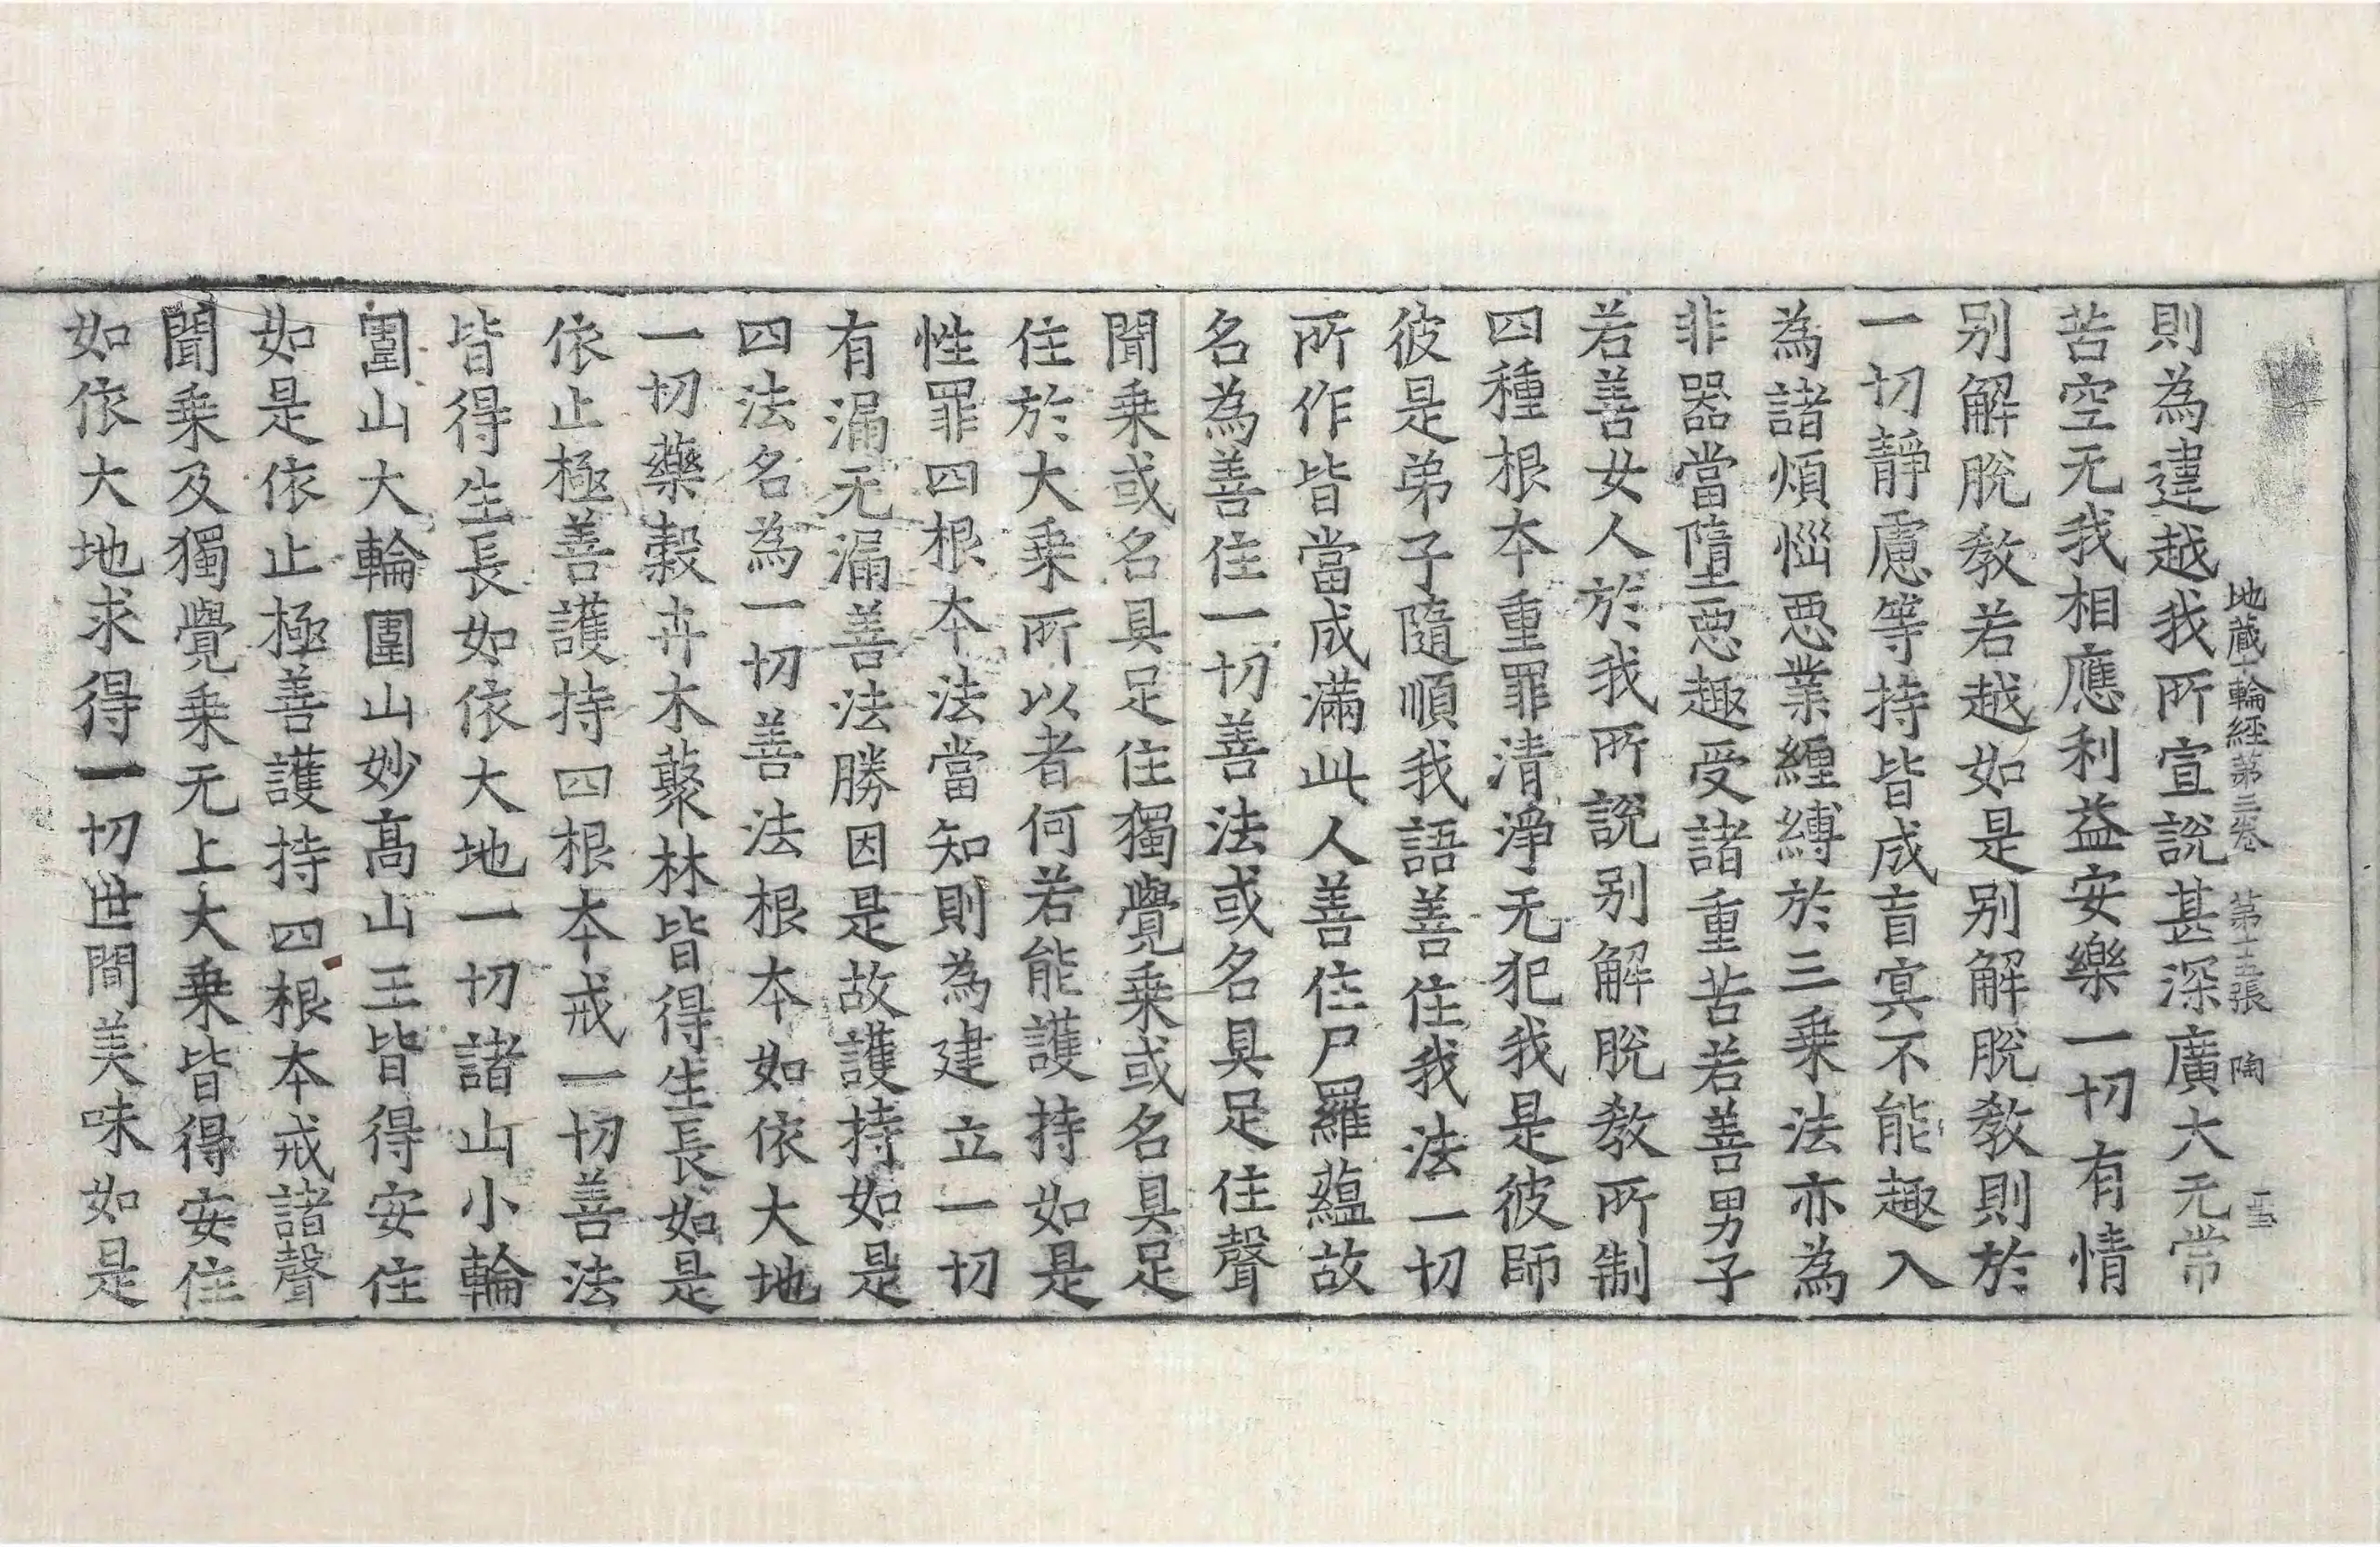 地蔵十輪經第三卷 第十五張 陶
則為違越我所宣說甚深廣大无常
苦空无我相應利益安樂一切有情
别解脫教若越如是别解脫教則於
一切靜慮等持皆成盲冥不能趣入
為諸煩惱惡業纏縛於三乗法亦為
非器當墮惡趣受諸重苦若善男子
若善女人於我所說别解脫教所制
四種根本重罪清淨无犯我是彼師
彼是弟子隨順我語善住我法一切
所作皆當成滿此人善住尸羅蘊故
名為善住一切善法或名具足住聲
聞乗或名具足住獨覺乗或名具足
住於大乗所以者何若能護持如是
性罪四根本法當知則為建立一切
有漏无漏善法勝因是故護持如是
四法名為一切善法根本如依大地
一切藥穀卉木藂林皆得生長如是
依止極善護持四根本戒一切善法
皆得生長如依大地一切諸山小輪
圍山大輪圍山妙高山王皆得安住
如是依止極善護持四根本戒諸聲
聞乗及獨覺乗无上大乗皆得安住
如依大地求得一切世間美味如是